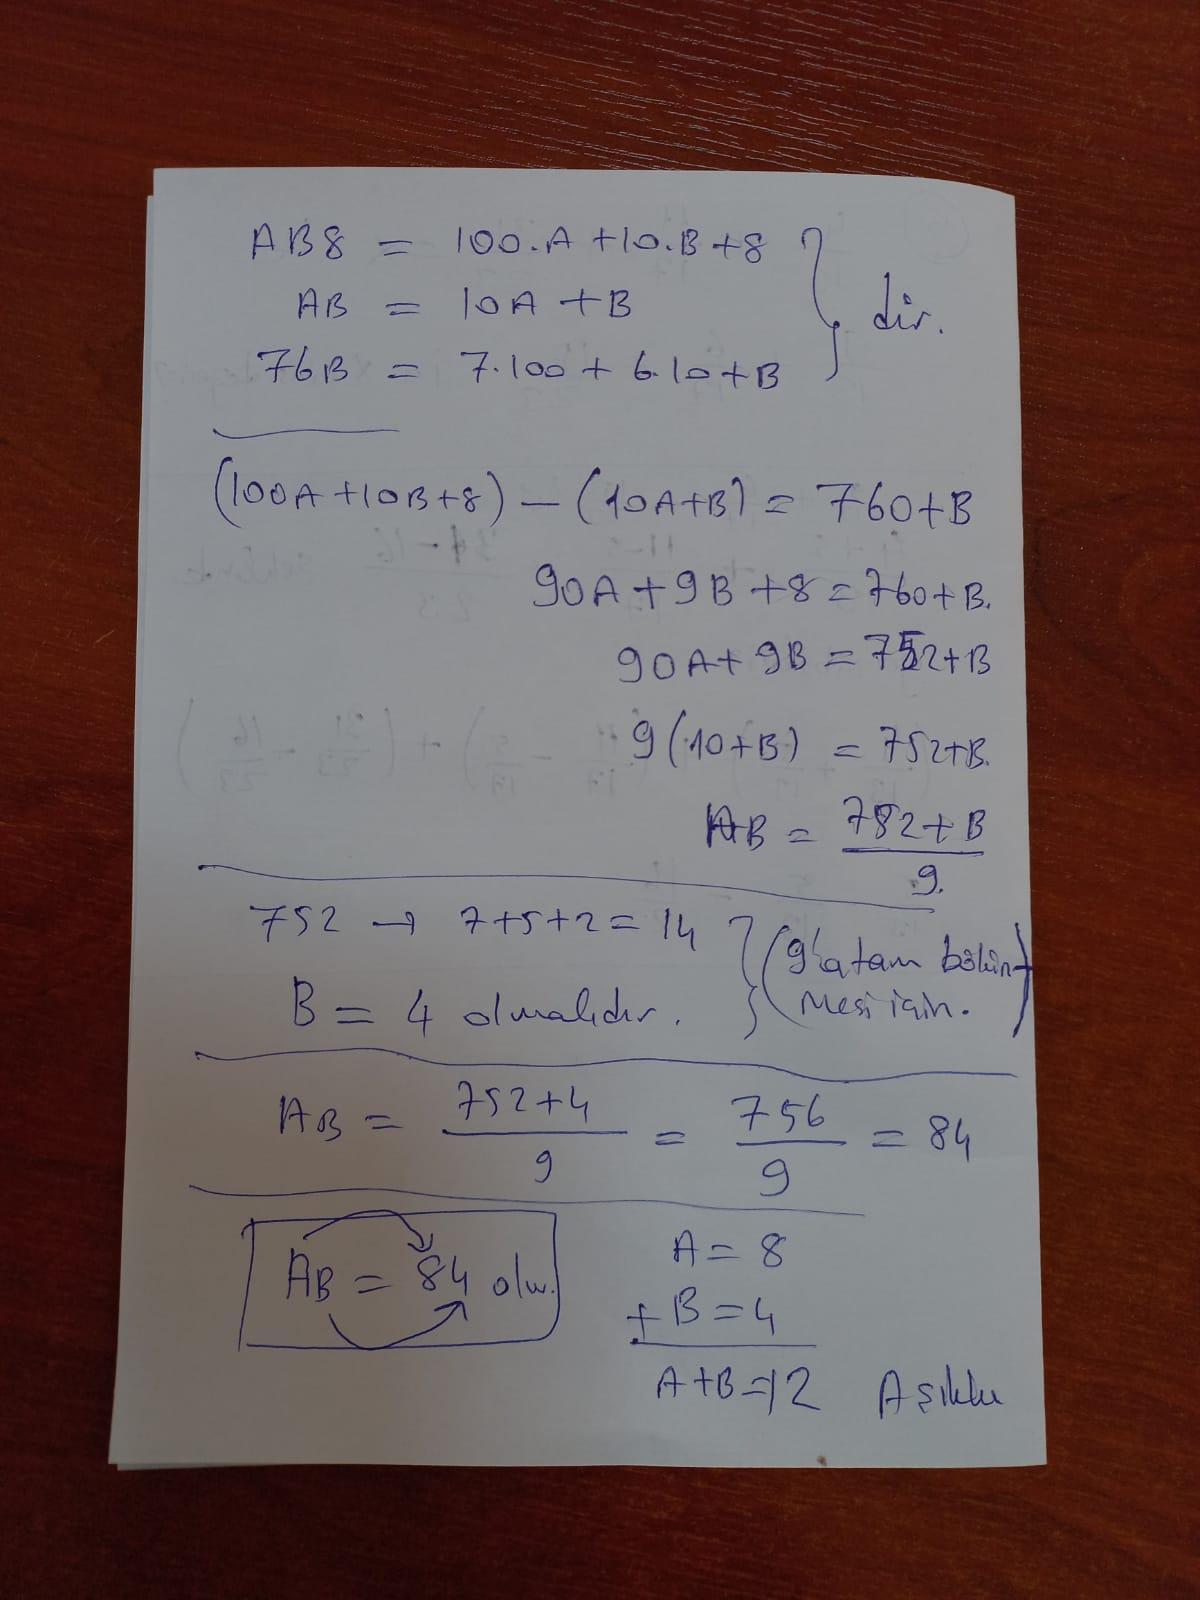 AB8 = 100.A+10.B+8
AB = 10A+B
dir.
76B = 7.100+6.10+B
(100A+10B+8)-(10A+B)=760+B
90A+9B+8=760+B.
90A+9B=752+B
9(10+B) = 752+B.
AB = 752+B
9.
752 → 7+5+2=14
B=4 olmalıdır.
(9'a tam bölün
mesi için.)
AB = 752+4 = 756 = 84
9 9
AB = 84 olur.
A=8
+ B=4
A+B=12 A şıkkı